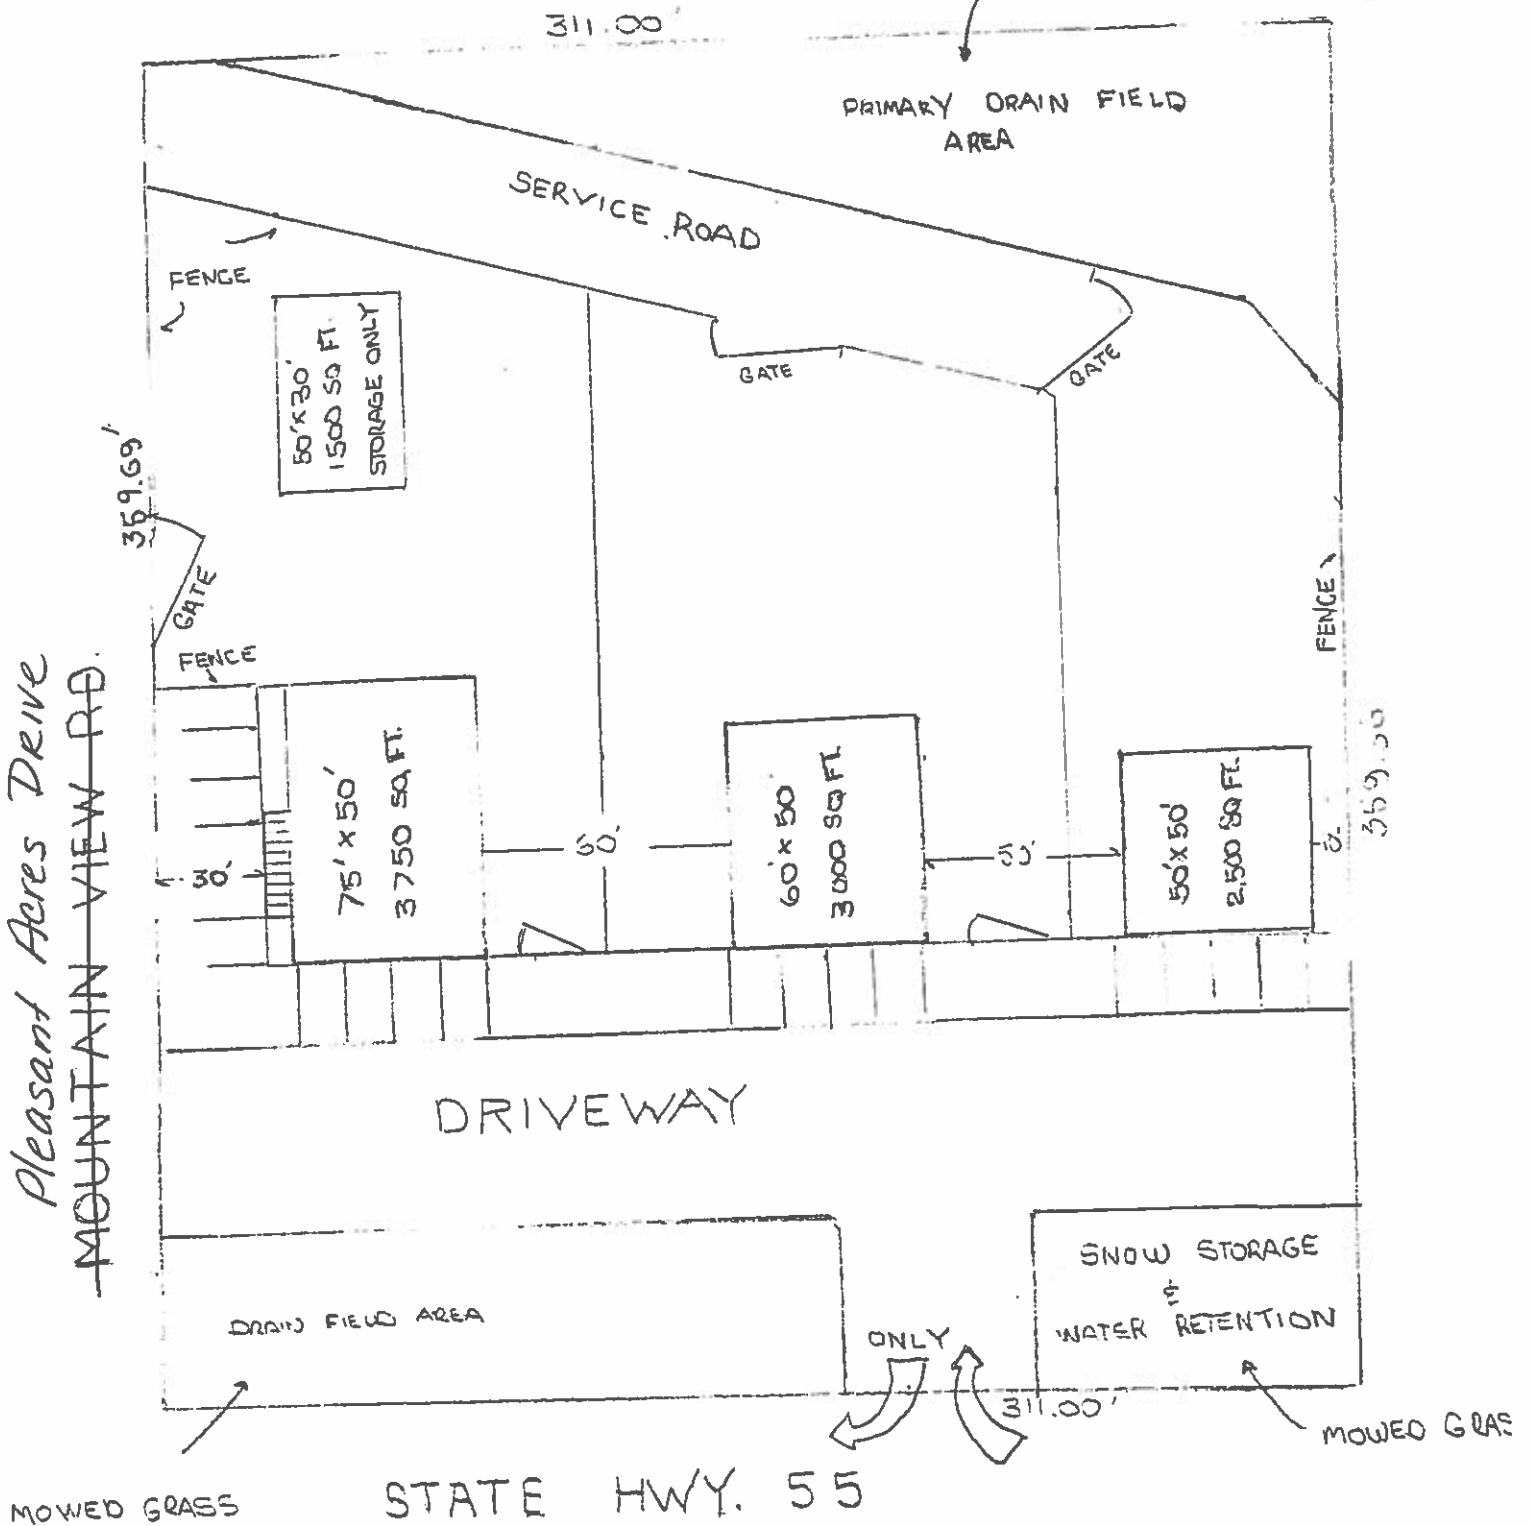 311.00'
PRIMARY DRAIN FIELD
AREA
SERVICE ROAD
FENCE
50'X30'
1500 SQ FT.
STORAGE ONLY
GATE
GATE
359.69'
GATE
FENCE
FENCE
Pleasant Acres Drive
MOUNTAIN VIEW RD.
30'
75' X 50'
3750 SQ FT.
60'
60' X 50'
3000 SQ FT.
50'
50' X 50'
2,500 SQ FT.
DRIVEWAY
DRAIN FIELD AREA
ONLY
SNOW STORAGE
&
WATER RETENTION
311.00'
MOWED GRAS
MOWED GRASS
STATE HWY. 55